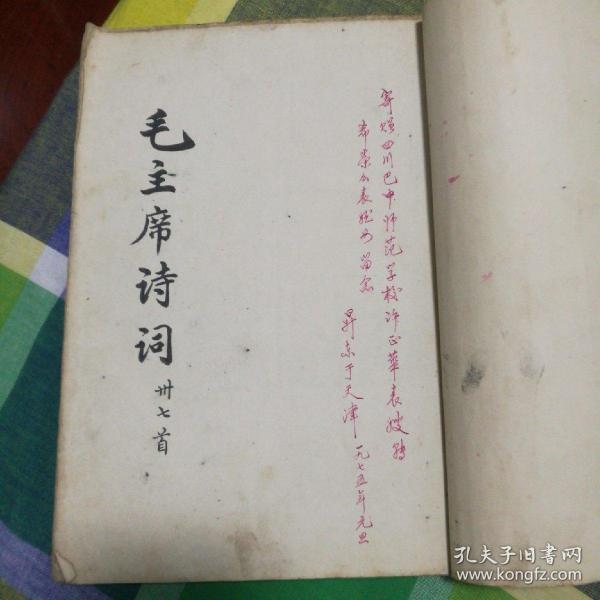 寄赠四川巴中师范学校许正华表嫂转
希荣 表 留念
昇东于天津 一九七五年元旦
毛主席诗词 卅七首
孔夫子旧书网
www.kongfz.com